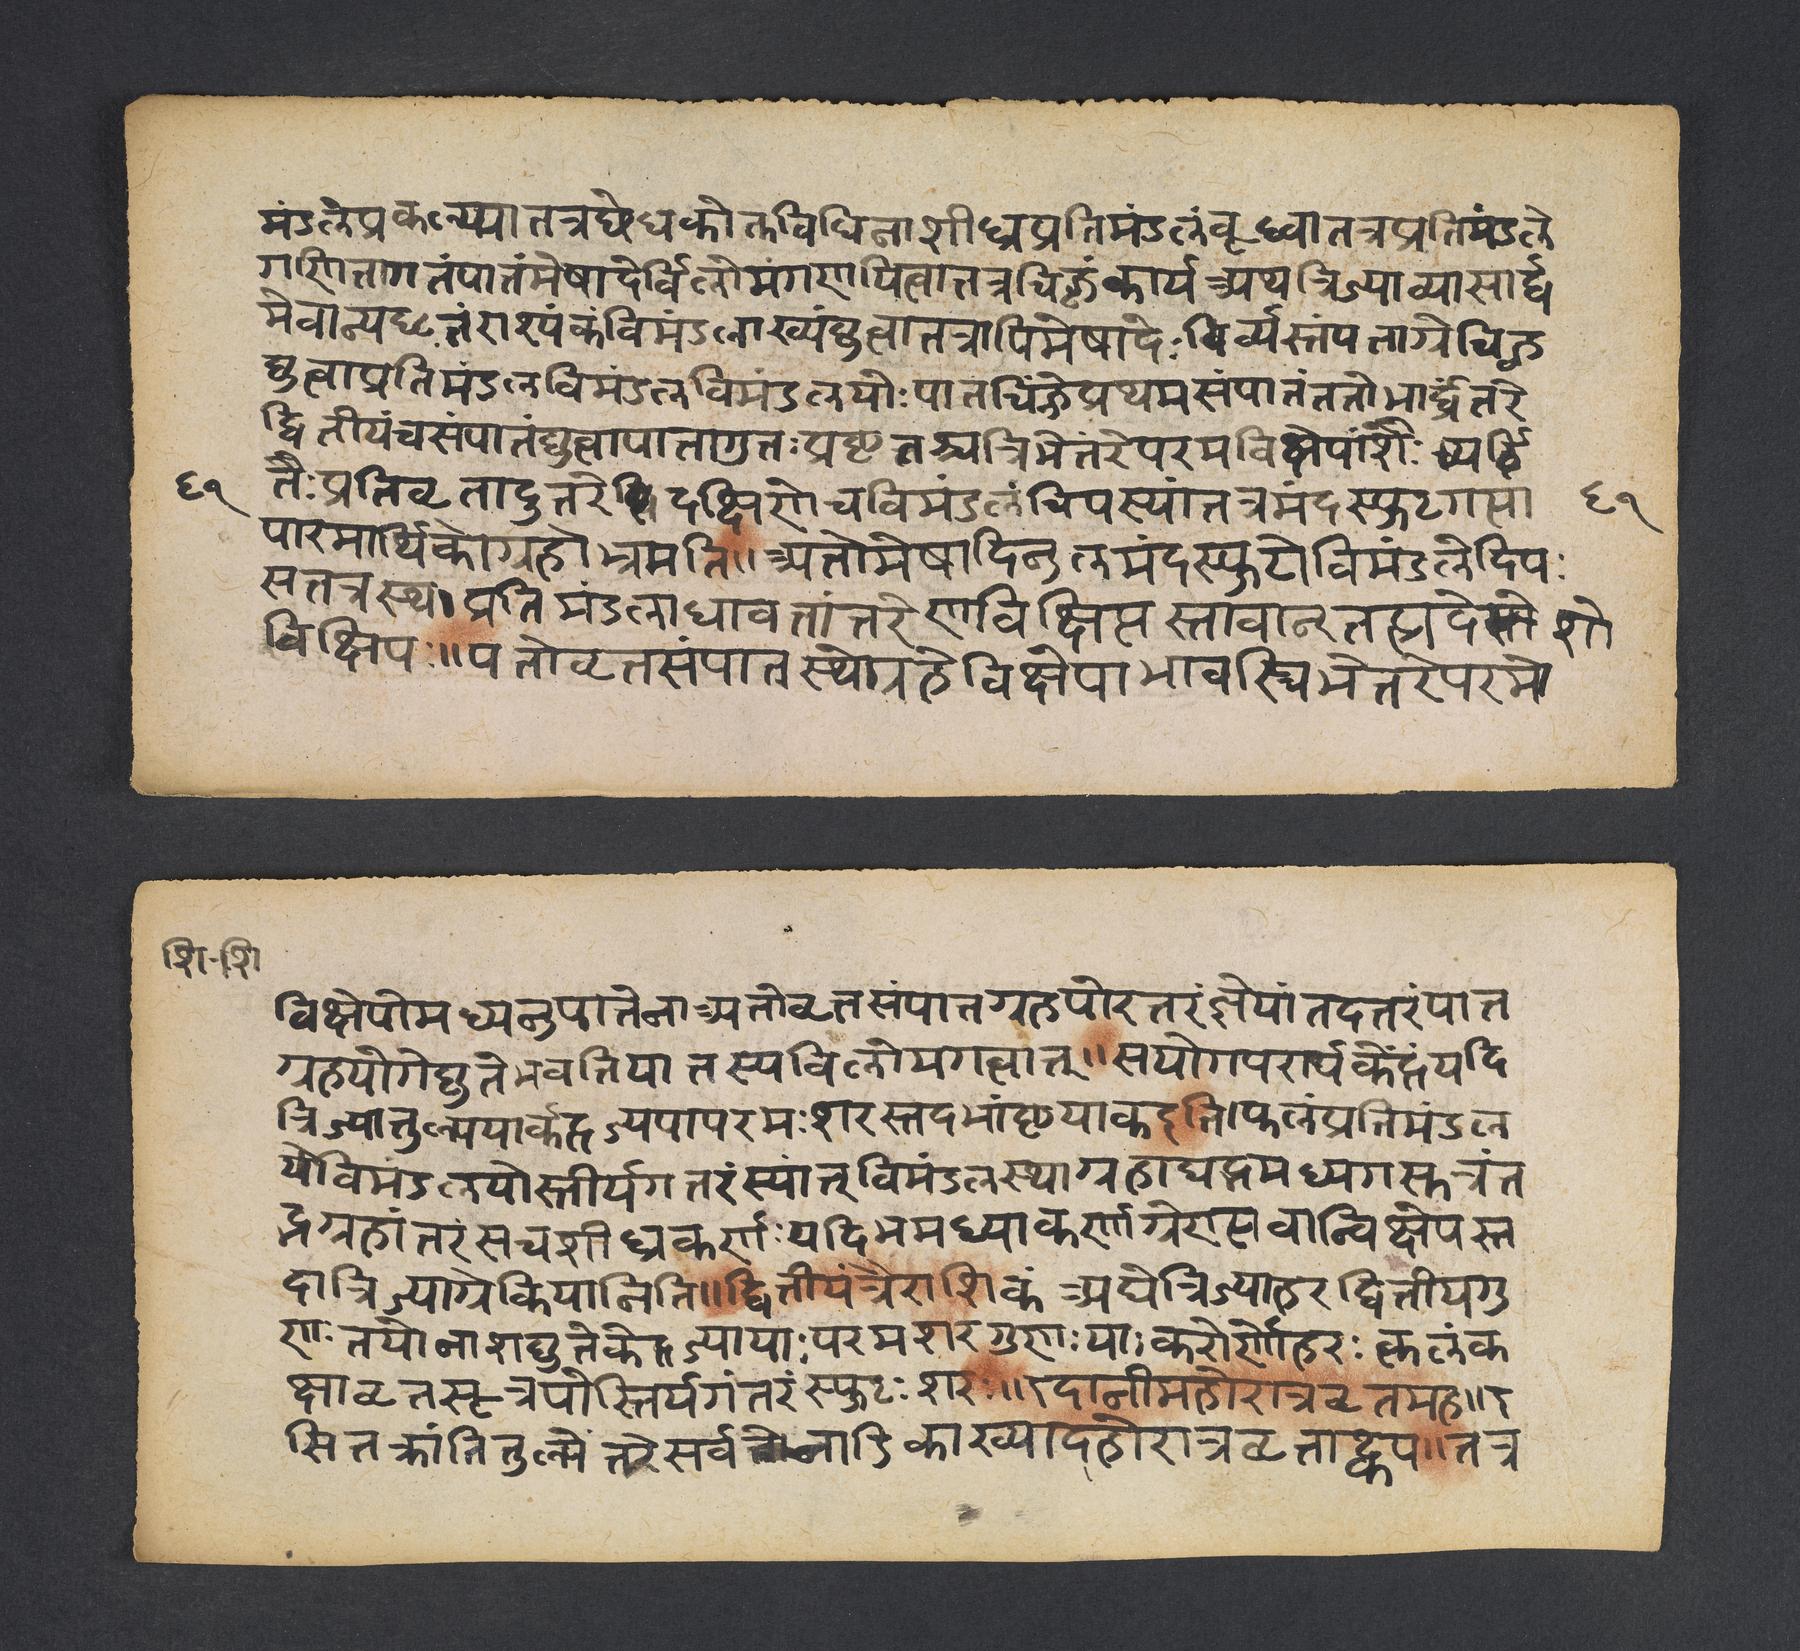 मंडलेप्रकल्प्यातत्रघेद्यकोक्तविधिनाशीघ्रप्रतिमंडलंवृध्वातत्रप्रतिमंडले
गणितागतंपातंमेषादेर्विलोमंगणयित्वातत्रचिह्नंकार्यंअथत्रिज्याव्यासार्द्ध
मेवान्यद्वृत्तंराश्यंकंविमंडलाख्यंघुत्वातत्रापिमेषादेःविर्व्यस्तंपताग्रेचिह्न
घुत्वाप्रतिमंडलविमंडलविमंडलयोःपातचिंह्नेप्रथमसंपातंततोभार्द्धंतरे
द्वितीयंचसंपातंघुत्वापातागुतःप्रष्टतश्चत्रिभेंतरेपरमविक्षेपांशैःप्यर्द्धि
तैःप्रतिवृतादुत्तरेदक्षिणेचविमंडलंचिपस्यांतत्रमंदस्फुटगत्या
६१
६१
पारमार्थिकोग्रहोभ्रमति॥अतोमेषादिनुलमंदस्फुटोविमंडलेदिपः
सतत्रस्थःप्रतिमंडलाद्यावतांत्तरेणविक्षिप्तस्तावान्तत्प्रदेशे
विक्षिपः॥पतोवृत्तसंपातस्थेग्रहेविक्षेपाभावस्त्रिभेंतरेपरमो
शि॰शि
विक्षेपोमध्येनुपातेनाअतोवृत्तसंपातग्रहपोरत्तरंज्ञेपांतदत्तरंपात
ग्रहयोगेघुतेभवतिपातस्यविलोमगत्वात्॥सयोगपरार्यकेंद्रंयदि
त्रिज्यातुल्ययार्कद्रज्यपापरमःशरस्तदभांष्टयाकइति।फलंप्रतिमंडल
येविमंडलयोस्तीर्यगत्तरंस्यांत्विमंडलस्थाग्रहाद्यद्भमध्यगस्तत्रंत
द्गग्रहांतरंसचशीघ्रकर्णःयदिभमध्याकर्णाग्रेणतावान्विक्षेपस्त
दात्रिज्याग्रेकियानिति॥द्वितीयंत्रैराशिकंअघेत्रिज्याहरद्वितीयगु
णःतयोनाशघुतेकेंद्रज्यायाःपरमशरगुणःयाःकरोर्णोहरःफलंक
क्षावृतसूत्रपोस्तिर्यगंतरंस्फुटःशरः॥इदानीमहोरात्रवृतमह॥इ
सितक्रांतितुल्येंतरेसर्वतोनाडिकाख्यादहोरात्रवृत्ताह्वप॥तत्र